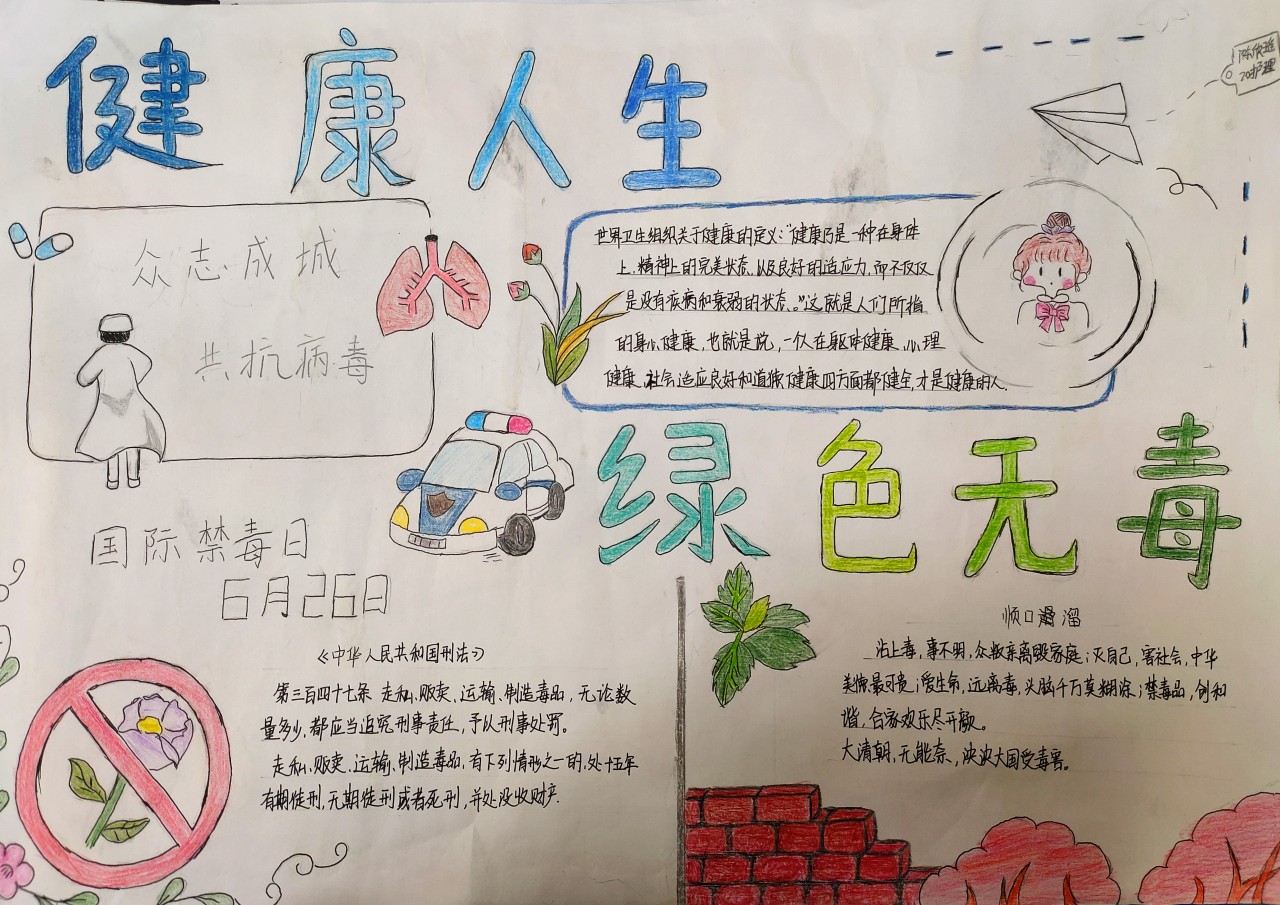 健康人生
陈欣瑶
20护理
众志成城
共抗病毒
世界卫生组织关于健康的定义:“健康乃是一种在身体
上、精神上的完美状态、以及良好的适应力,而不仅仅
是没有疾病和衰弱的状态。”这就是人们所指
的身心健康,也就是说,一仅在躯体健康、心理
健康、社会适应良好和道德健康四方面都健全,才是健康的人.
绿色无毒
国际禁毒日
6月26日
《中华人民共和国刑法》
第三百四十七条 走私、贩卖、运输、制造毒品,无论数
量多少,都应当追究刑事责任,予以刑事处罚。
走私、贩卖、运输、制造毒品,有下列情形之一的,处十五年
有期徒刑,无期徒刑或者死刑,并处没收财产.
顺口溜
沾上毒,事不明,众叛亲离毁家庭;灭自己,害社会,中华
美德最可贵;爱生命,远离毒,头脑千万莫糊涂;禁毒品,创和
谐,合家欢乐尽开颜。
大清朝,无能奈,泱泱大国受毒害。